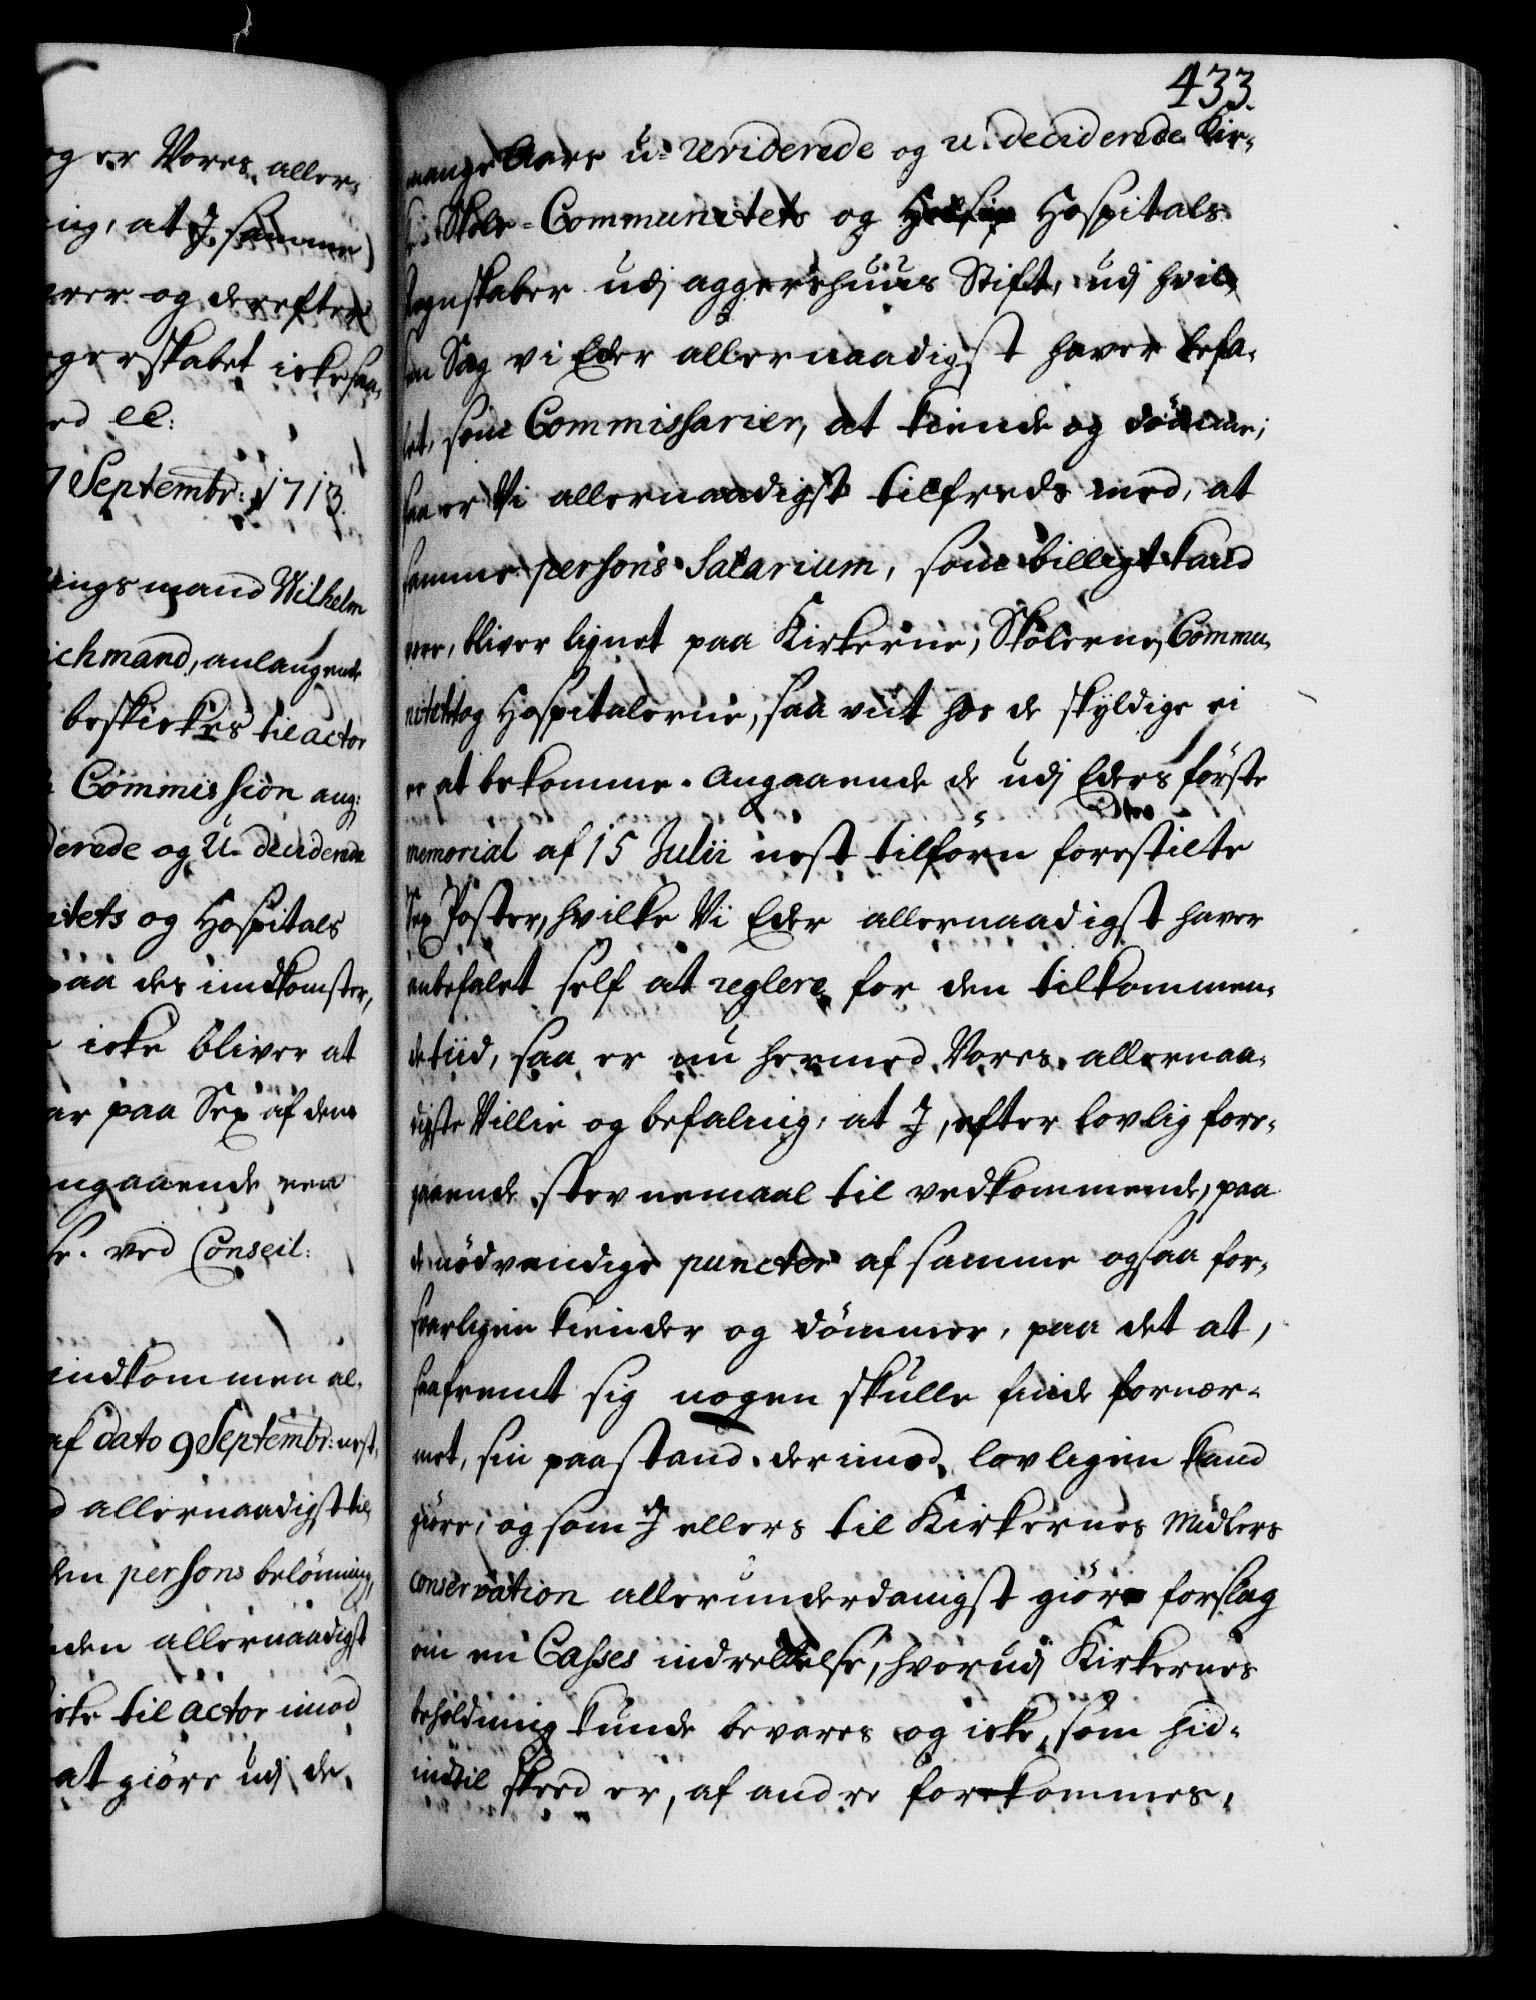 og er Vores aller-
ing, at I samme
erer og derefter
gerskabet icke saa-
ed ec:
7 Septembr: 1713.
ings mand Wilhelm
ichmand, anlangende
beskickes til actor
Commission ang:
derede og U-deciderede
itets og Hospitals
paa des indkomster,
icke bliver at
ar paa Sex af dem
ngaaende ven
se. ved Conseil:
indkommen al-
af dato 9 Septembr: nest-
allernaadigst til
den persons belönning,
den allernaadigst
icke til actor imod
at giöre udj de
433.
mange Aars u-reviderede og u-deciderede Kir-
ke- Skole-Communitets og Hospitals
Regnskaber udj aggershuus Stift, udj hvil-
ken Sag vi Eder allernaadigst haver befa-
let, som Commissarier, at kiende og dömme;
saa er Vi allernaadigst tilfreds med, at
samme persons Salarium, som billigt kand
vere, bliver lignet paa Kirkerne, Skolerne, Commu-
nitetet og Hospitalerne, saa viit hos de skyldige ei
er at bekomme. Angaaende de udj Eders förste
memorial af 15 Julii nest tilforn forestilte
Sex Poster, hvilke Vi Eder allernaadigst haver
anbefalet self at reglere for den tilkommen-
de tiid, saa er nu hermed Vores allernaa-
digste Villie og befaling, at I, efter lovlig fore-
gaaende stevnemaal til vedkommende, paa
de nödvendige puncter af samme ogsaa for-
svarligen kiender og dömmer, paa det at,
saafremt sig nogen skulle finde fornær-
met, sin paastand derimod lovligen kand
giöre; og som I ellers til Kirkernes Midlers
conservation allerunderdanigst giöre forslag
om en Casses indrettelse, hvorudj Kirkernes
beholdning kunde bevares og icke, som hid-
indtil skeed er, af andre forkommes,